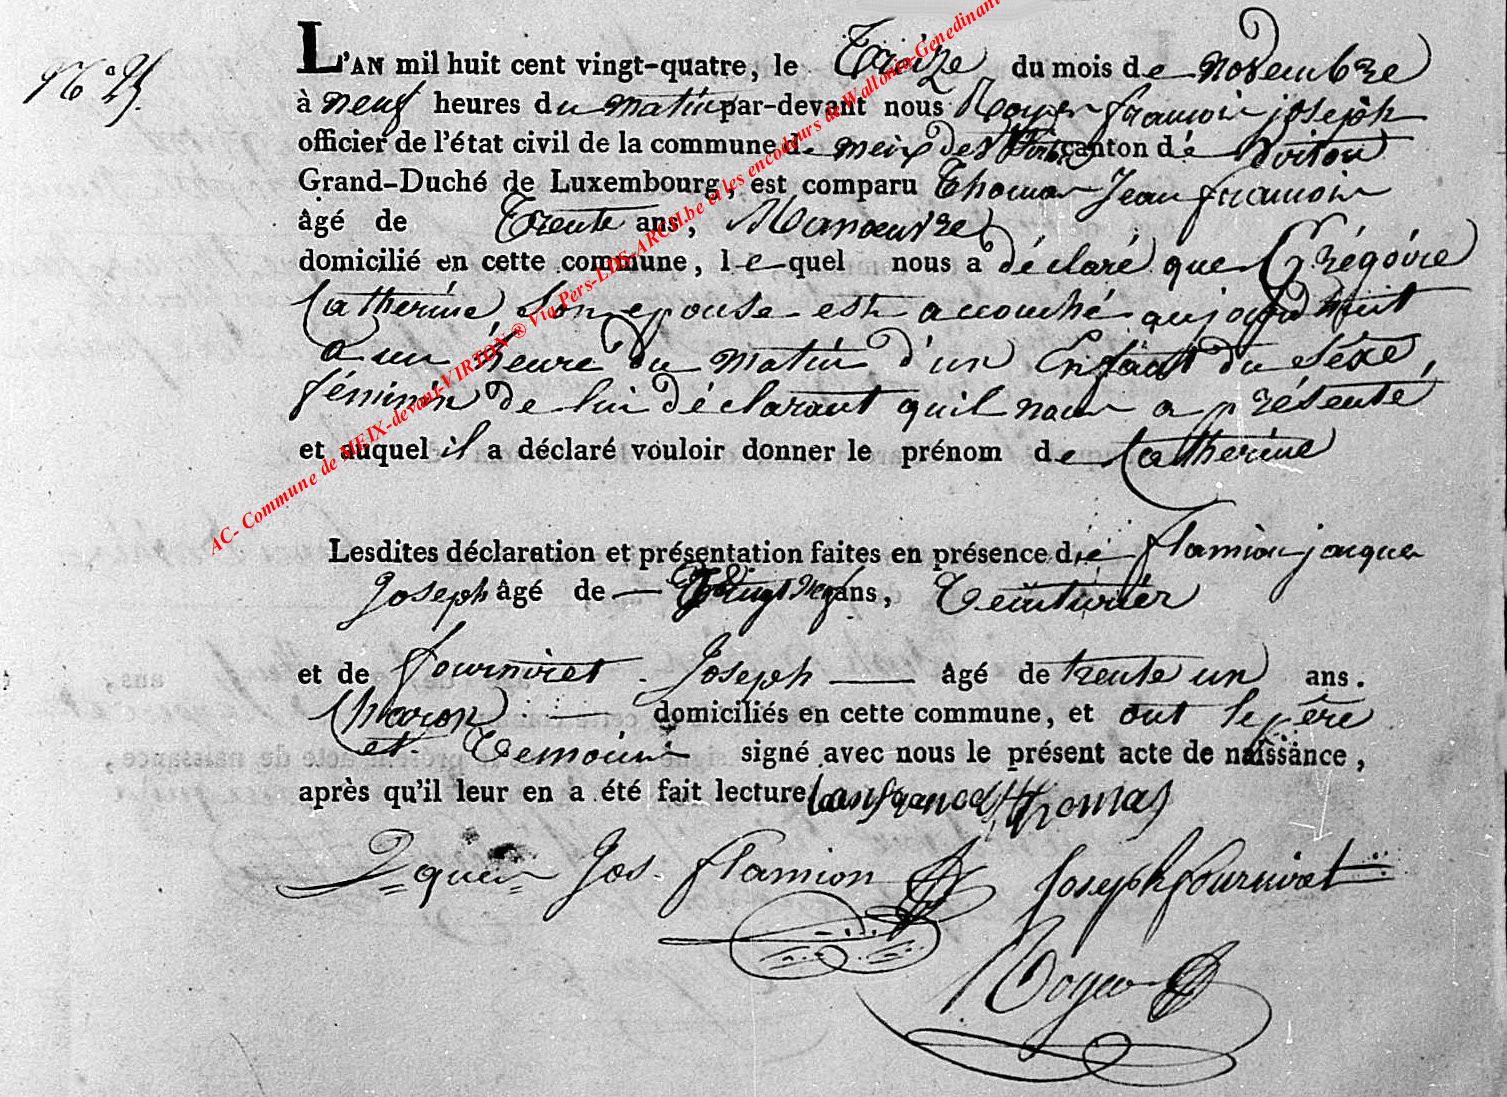 N.° 25.
L'AN mil huit cent vingt-quatre, le Treize du mois de novembre
à neuf heures du matin par-devant nous Royer françois joseph
officier de l'état civil de la commune de meix devt Virton canton de Virton
Grand-Duché de Luxembourg, est comparu Thomas Jean françois
âgé de Trente ans, Manoeuvre
domicilié en cette commune, le quel nous a déclaré que Grégoire
Catherine Son epouse est accouché aujourd'huit
a un heure du matin d'un Enfant du séxe
féminin de lui déclarant quil nous a présenté
et auquel il a déclaré vouloir donner le prénom de Catherine
Lesdites déclaration et présentation faites en présence de flamion jacques
Joseph âgé de vingt neuf ans, Teinturier
et de fourniret Joseph âgé de trente un ans.
Charon domiciliés en cette commune, et ont le père
et Temoins signé avec nous le présent acte de naissance,
après qu'il leur en a été fait lecture Thomas
Jos. flamion Joseph fourniret
Royer
AC- Commune de MEIX-devant-VIRTON ® Via Pers-LDS-ARCH.be et les encodeurs de Wallonia-Genedinant